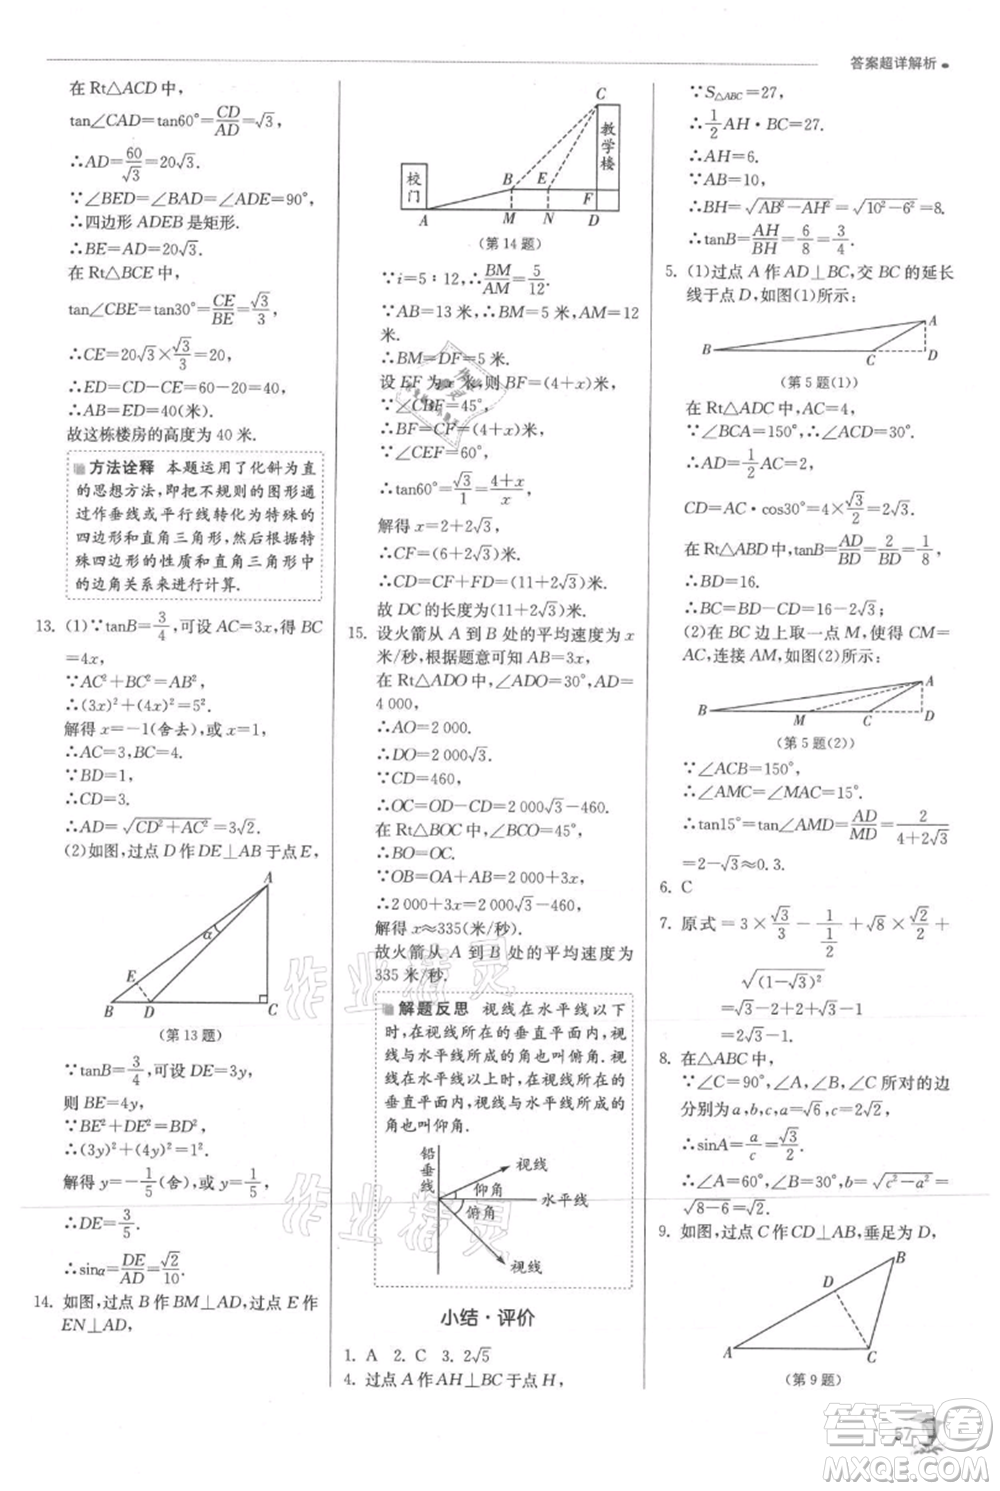 答案超详解析
在 Rt△ACD 中,
tan∠CAD=tan60°=CD/AD=√3,
∴AD=60/√3=20√3.
∵∠BED=∠BAD=∠ADE=90°,
∴四边形 ADEB 是矩形.
∴BE=AD=20√3.
在 Rt△BCE 中,
tan∠CBE=tan30°=CE/BE=√3/3,
∴CE=20√3×√3/3=20.
∴ED=CD-CE=60-20=40.
∴AB=ED=40(米).
故这栋楼房的高度为 40 米.
方法诠释 本题运用了化斜为直
的思想方法,即把不规则的图形通
过作垂线或平行线转化为特殊的
四边形和直角三角形,然后根据特
殊四边形的性质和直角三角形中
的边角关系来进行计算.
13. (1)∵tanB=3/4,可设 AC=3x,得 BC
=4x,
∵AC²+BC²=AB²,
∴(3x)²+(4x)²=5².
解得 x=-1(舍去),或 x=1,
∴AC=3,BC=4.
∵BD=1,
∴CD=3.
∴AD=√(CD²+AC²)=3√2.
(2)如图,过点 D 作 DE⊥AB 于点 E,
A
α
E
B D C
(第 13 题)
∵tanB=3/4,可设 DE=3y,
则 BE=4y,
∵BE²+DE²=BD²,
∴(3y)²+(4y)²=1².
解得 y=-1/5(舍去),或 y=1/5,
∴DE=3/5.
∴sinα=DE/AD=√2/10.
14. 如图,过点 B 作 BM⊥AD,过点 E 作
EN⊥AD,
C
教学楼
校门
B E F
A M N D
(第 14 题)
∵i=5∶12,∴BM/AM=5/12.
∵AB=13 米,∴BM=5 米,AM=12
米.
∴BM=DF=5 米.
设 EF 为 x 米,则 BF=(4+x)米.
∵∠CBF=45°,
∴BF=CF=(4+x)米.
∵∠CEF=60°,
∴tan60°=√3/1=(4+x)/x,
解得 x=2+2√3,
∴CF=(6+2√3)米.
∴CD=CF+FD=(11+2√3)米.
故 DC 的长度为(11+2√3)米.
15. 设火箭从 A 到 B 处的平均速度为 x
米/秒,根据题意可知 AB=3x,
在 Rt△ADO 中,∠ADO=30°,AD=
4 000,
∴AO=2 000.
∴DO=2 000√3.
∵CD=460,
∴OC=OD-CD=2 000√3-460.
在 Rt△BOC 中,∠BCO=45°,
∴BO=OC.
∵OB=OA+AB=2 000+3x,
∴2 000+3x=2 000√3-460.
解得 x≈335(米/秒).
故火箭从 A 到 B 处的平均速度为
335 米/秒.
解题反思 视线在水平线以下
时,在视线所在的垂直平面内,视
线与水平线所成的角也叫俯角.
视线在水平线以上时,在视线所在的
垂直平面内,视线与水平线所成的
角也叫仰角.
铅垂线
视线
仰角
水平线
俯角
视线
小结·评价
1. A 2. C 3. 2√5
4. 过点 A 作 AH⊥BC 于点 H,
∵S△ABC=27,
∴1/2 AH·BC=27.
∴AH=6.
∵AB=10,
∴BH=√(AB²-AH²)=√(10²-6²)=8.
∴tanB=AH/BH=6/8=3/4.
5. (1)过点 A 作 AD⊥BC,交 BC 的延长
线于点 D,如图(1)所示:
A
B C D
(第 5 题(1))
在 Rt△ADC 中,AC=4,
∵∠BCA=150°,∴∠ACD=30°.
∴AD=1/2 AC=2.
CD=AC·cos30°=4×√3/2=2√3.
在 Rt△ABD 中,tanB=AD/BD=2/BD=1/8,
∴BD=16.
∴BC=BD-CD=16-2√3.
(2)在 BC 边上取一点 M,使得 CM=
AC,连接 AM,如图(2)所示:
A
B M C D
(第 5 题(2))
∵∠ACB=150°,
∴∠AMC=∠MAC=15°.
∴tan15°=tan∠AMD=AD/MD=2/(4+2√3)
=2-√3≈0.3.
6. C
7. 原式=3×√3/3-1/(1/2)+√8×√2/2+
√(1-√3)²
=√3-2+2+√3-1
=2√3-1.
8. 在△ABC 中,
∵∠C=90°,∠A、∠B、∠C 所对的边
分别为 a,b,c,a=√6,c=2√2,
∴sinA=a/c=√3/2.
∴∠A=60°,∠B=30°,b=√(c²-a²)=
√(8-6)=√2.
9. 如图,过点 C 作 CD⊥AB,垂足为 D,
B
D
A C
(第 9 题)
57
作业精灵
作业精灵
答案圈
MXQE.COM